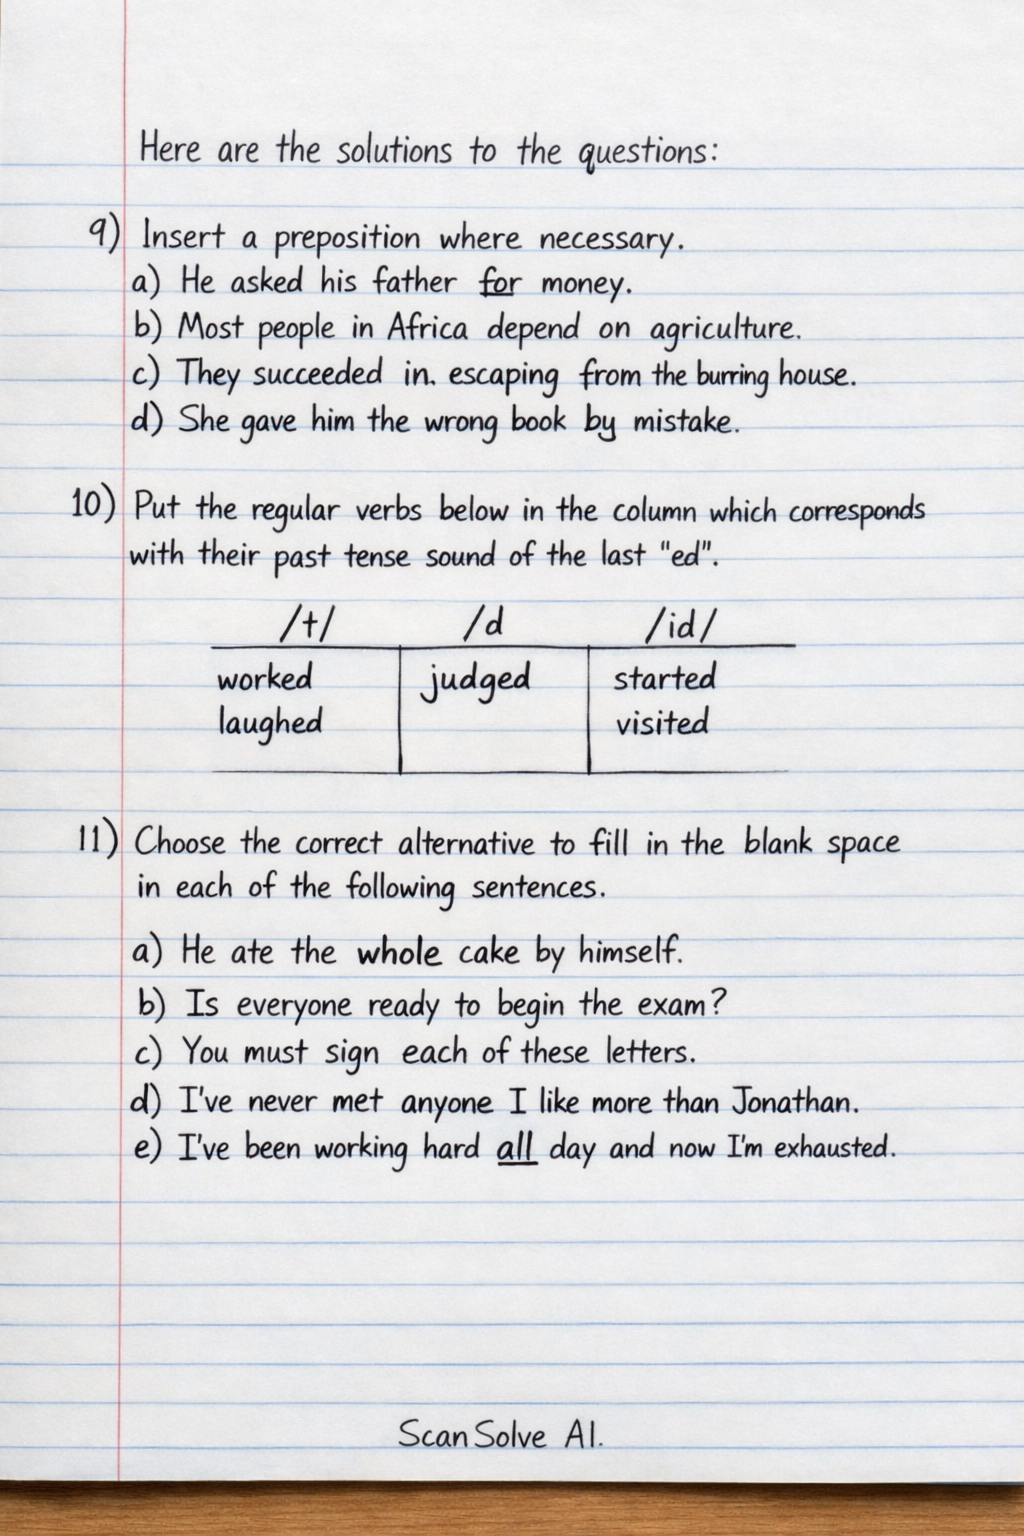 Here are the solutions to the questions:
9) Insert a preposition where necessary.
a) He asked his father for money.
b) Most people in Africa depend on agriculture.
c) They succeeded in. escaping from the burring house.
d) She gave him the wrong book by mistake.
10) Put the regular verbs below in the column which corresponds
with their past tense sound of the last "ed".
/t/ /d /id/
worked judged started
laughed visited
11) Choose the correct alternative to fill in the blank space
in each of the following sentences.
a) He ate the whole cake by himself.
b) Is everyone ready to begin the exam?
c) You must sign each of these letters.
d) I've never met anyone I like more than Jonathan.
e) I've been working hard all day and now I'm exhausted.
ScanSolve AI.